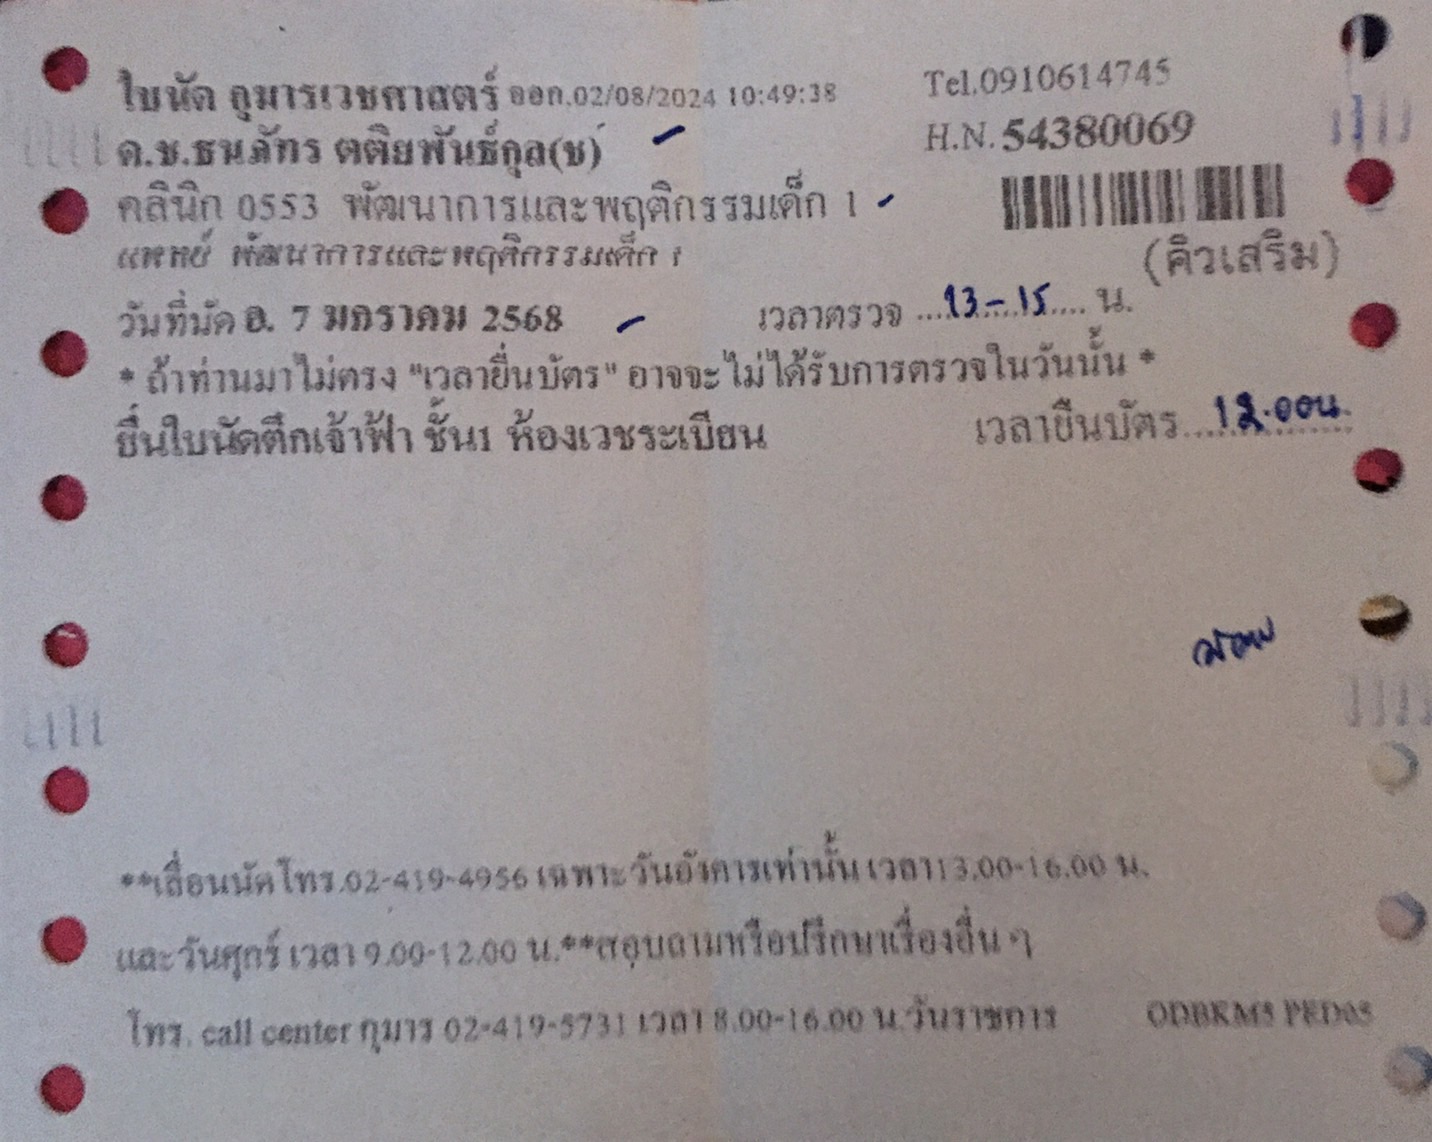 ใบนัด กุมารเวชศาสตร์ ออก.02/08/2024 10:49:38 Tel.0910614745
ด.ช.ธนภัทร ตติยพันธ์กุล(ช) H.N.54380069
คลินิก 0553 พัฒนาการและพฤติกรรมเด็ก 1
แพทย์ พัฒนาการและพฤติกรรมเด็ก 1 (คิวเสริม)
วันที่นัด อ. 7 มกราคม 2568 เวลาตรวจ ....13-15.... น.
* ถ้าท่านมาไม่ตรง "เวลายื่นบัตร" อาจจะไม่ได้รับการตรวจในวันนั้น *
ยื่นใบนัดตึกเจ้าฟ้า ชั้น1 ห้องเวชระเบียน เวลายื่นบัตร...12.00น.
**เลื่อนนัดโทร.02-419-4956 เฉพาะวันอังคารเท่านั้น เวลา13.00-16.00 น.
และวันศุกร์ เวลา 9.00-12.00 น.**สอบถามหรือปรึกษาเรื่องอื่น ๆ
โทร. call center กุมาร 02-419-5731 เวลา 8.00-16.00 น.วันราชการ